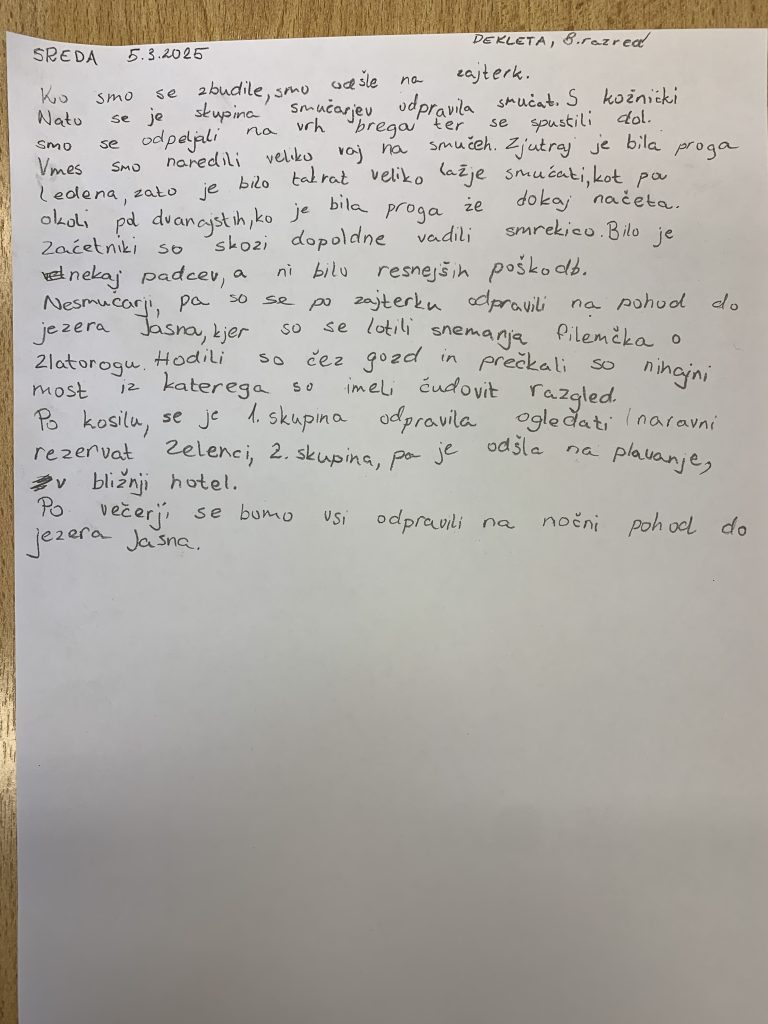 SREDA 5.3.2025
DEKLETA, 8.razred
Ko smo se zbudile, smo odšle na zajterk.
Nato se je skupina smučarjev odpravila smučat. S kožnički
smo se odpeljali na vrh brega ter se spustili dol.
Vmes smo naredili veliko vaj na smučeh. Zjutraj je bila proga
ledena, zato je bilo takrat veliko lažje smučati, kot pa
okoli pol dvanajstih, ko je bila proga že dokaj načeta.
Začetniki so skozi dopoldne vadili smrekico. Bilo je
nekaj padcev, a ni bilo resnejših poškodb.
Nesmučarji, pa so se po zajterku odpravili na pohod do
jezera Jasna, kjer so se lotili snemanja filemčka o
Zlatorogu. Hodili so čez gozd in prečkali so nihajni
most iz katerega so imeli čudovit razgled.
Po kosilu, se je 1. skupina odpravila ogledati naravni
rezervat Zelenci, 2. skupina, pa je odšla na plavanje,
v bližnji hotel.
Po večerji se bomo vsi odpravili na nočni pohod do
jezera Jasna.